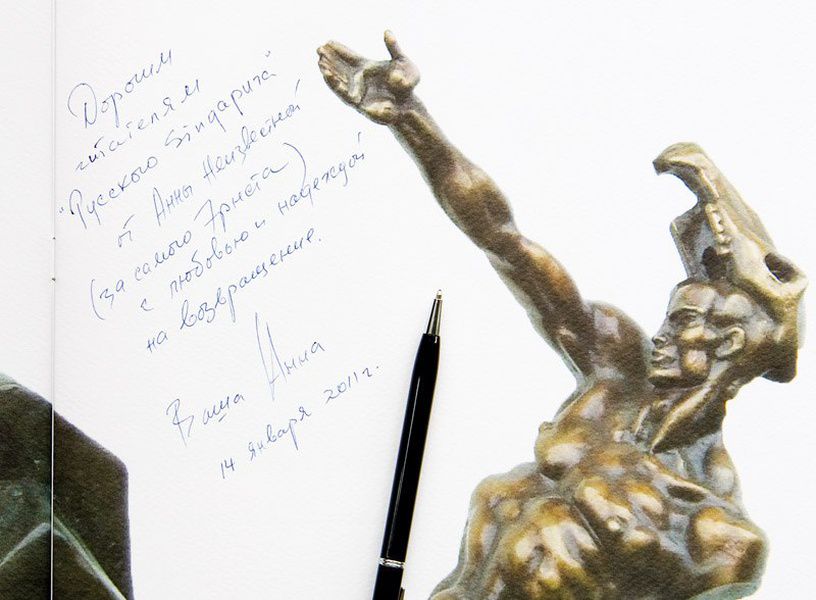 Дорогим
читателям
"Русского Singapura"
от Анны Неизвестной
(за самого Эрнста)
с любовью и надеждой
на возвращение.
Ваша Анна
14 января 2011 г.